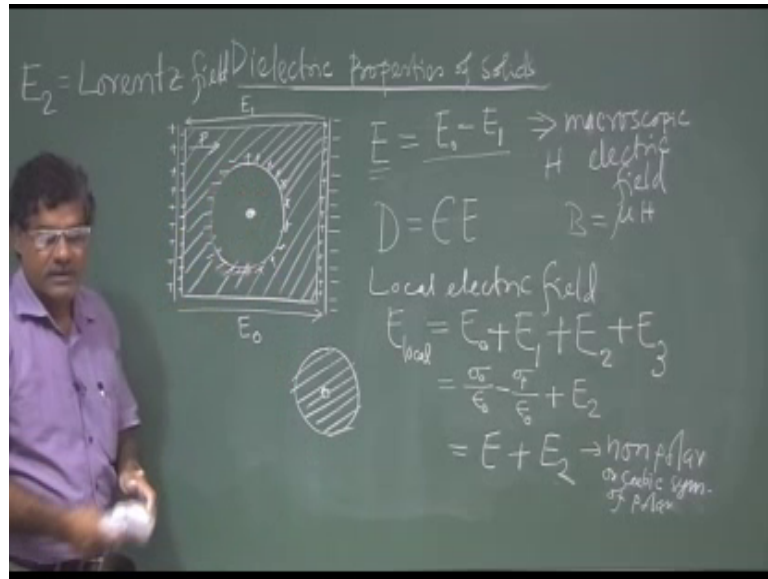 E₂ = Lorentz field Dielectric Properties of Solids
E₁
P
E₀
E = E₀ - E₁ ⇒ macroscopic
H electric
field
D = ∈E B = μH
Local electric field
E_local = E₀ + E₁ + E₂ + E₃
= σ₀/ε₀ - σₚ/ε₀ + E₂
= E + E₂ → non polar
or cubic sym.
of polar